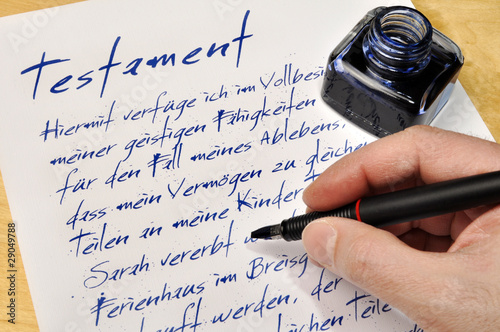 Testament
Hiermit verfüge ich im Vollbesi
meiner geistigen Fähigkeiten
für den Fall meines Ablebens,
dass mein Vermögen zu gleichen
Teilen an meine Kinder T
Sarah vererbt w
Ferienhaus im Breisg
kauft werden, der
leichen Teile
29049788